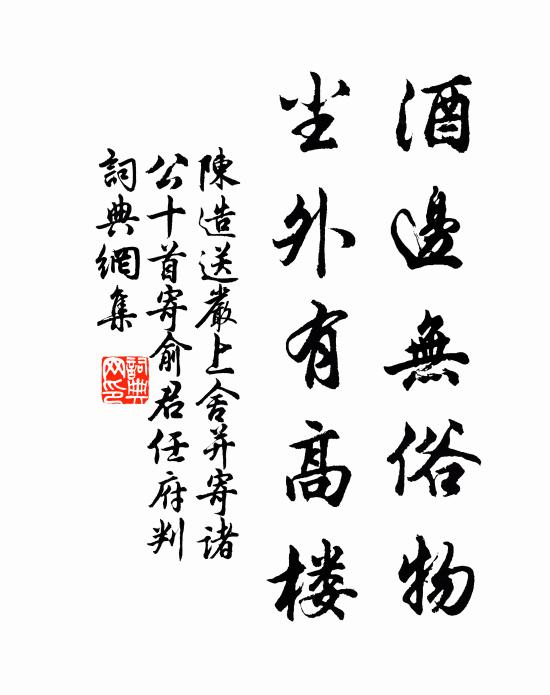 酒邊無俗物
尘外有高楼
陳造送嚴上舍并寄諸
公十首寄俞君任府判
詞典網集
詞典
网印